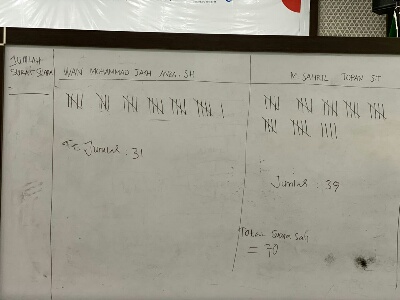 JUMLAH
SURAT SUARA
WAN MOHAMMAD
SH
M SAHRIL TOPAN ST
Jumlah : 31
Jumlah : 39
Total Suara Sah
= 70